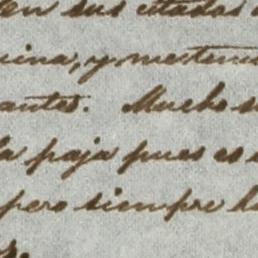 en sus citados
ina, y mertenus
antes. Mucho s
la paja pues es s
pero siempre h